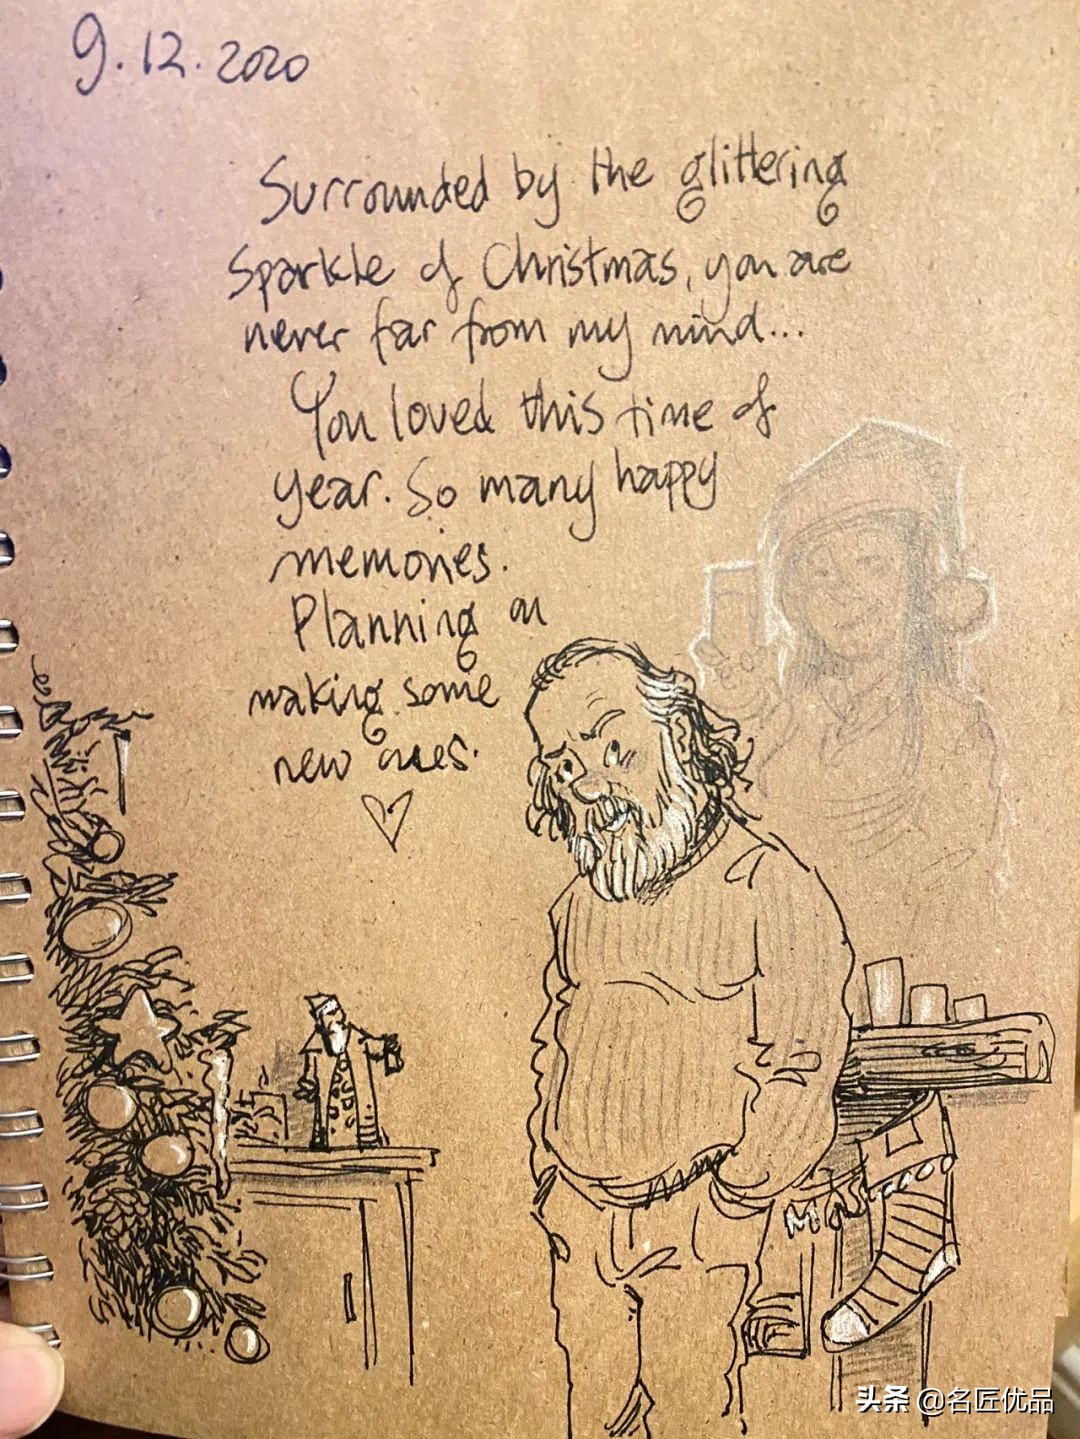 9.12.2020
Surrounded by the glittering
sparkle of Christmas, you are
never far from my mind...
You loved this time of
year. So many happy
memories.
Planning on
making some
new ones.
头条 @名匠优品